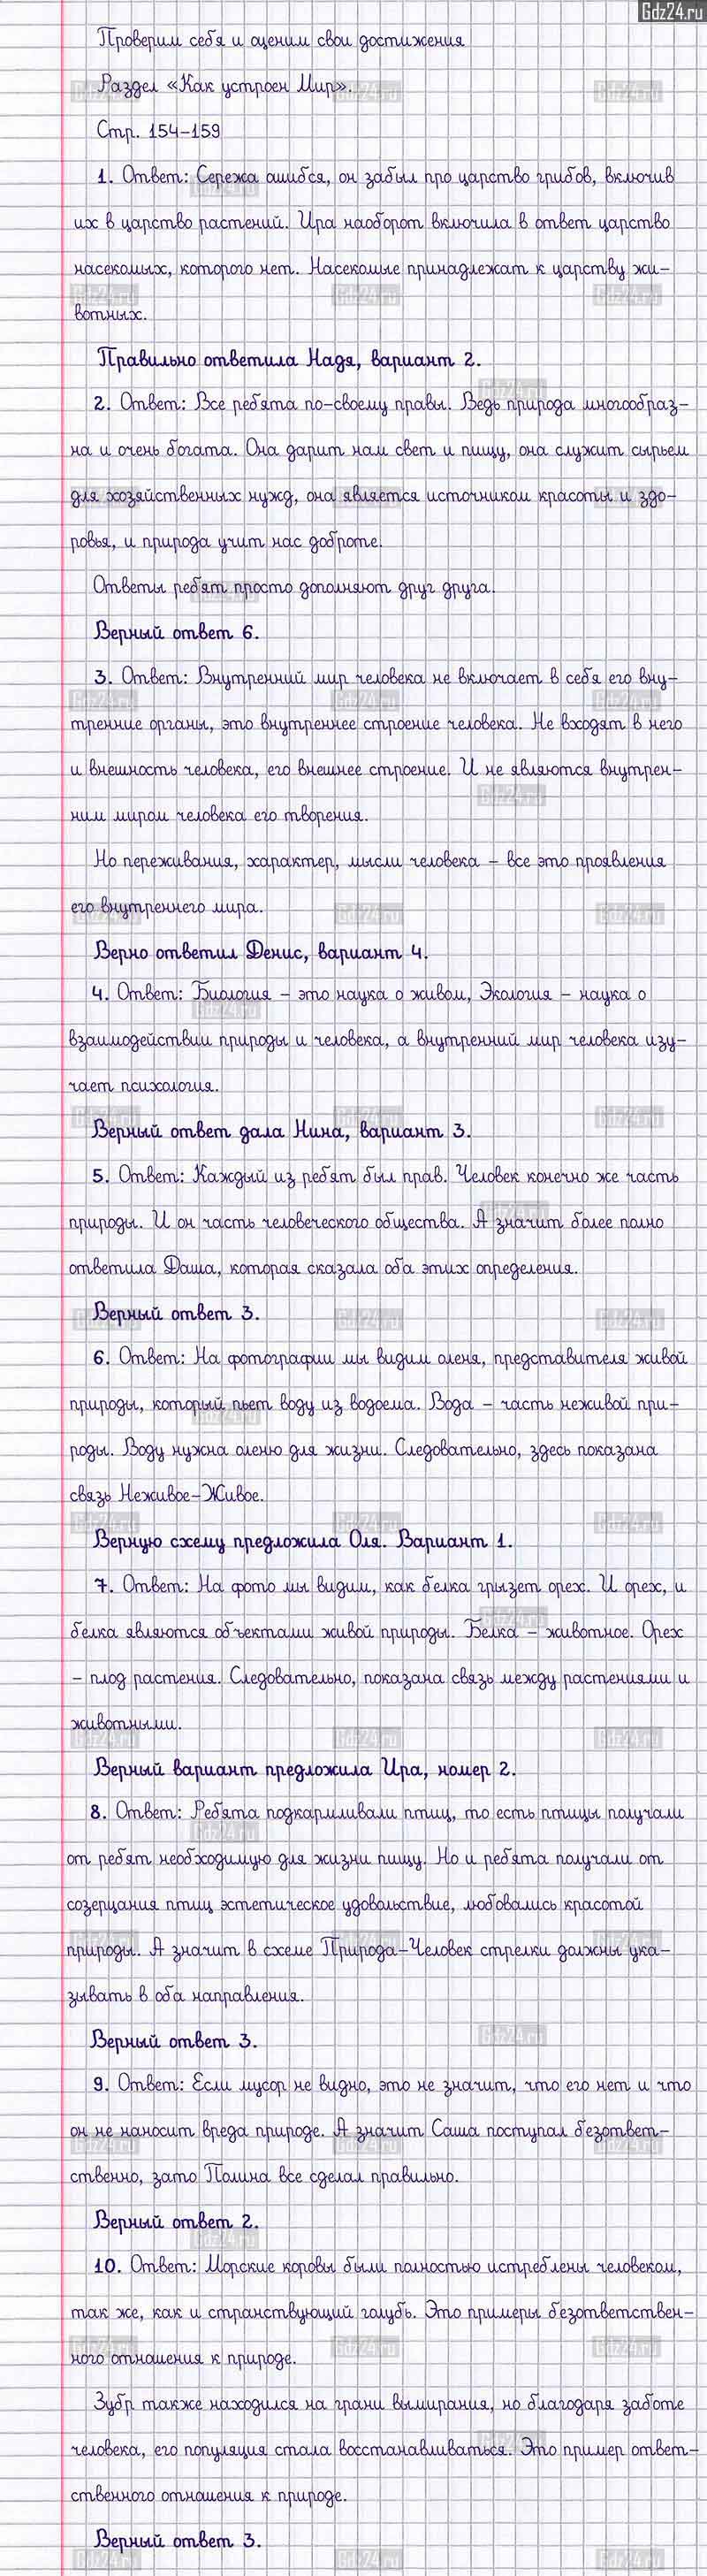 Gdz24.ru
Проверим себя и оценим свои достижения
Раздел «Как устроен Мир».
Стр. 154-159
1. Ответ: Сережа ошибся, он забыл про царство грибов, включив
их в царство растений. Ира наоборот включила в ответ царство
насекомых, которого нет. Насекомые принадлежат к царству жи-
вотных.
Правильно ответила Надя, вариант 2.
2. Ответ: Все ребята по-своему правы. Ведь природа многообраз-
на и очень богата. Она дарит нам свет и пищу, она служит сырьем
для хозяйственных нужд, она является источником красоты и здо-
ровья, и природа учит нас доброте.
Ответы ребят просто дополняют друг друга.
Верный ответ 6.
3. Ответ: Внутренний мир человека не включает в себя его вну-
тренние органы, это внутреннее строение человека. Не входят в него
и внешность человека, его внешнее строение. И не являются внутрен-
ним миром человека его творения.
Но переживания, характер, мысли человека – все это проявления
его внутреннего мира.
Верно ответил Денис, вариант 4.
4. Ответ: Биология – это наука о живом, Экология – наука о
взаимодействии природы и человека, а внутренний мир человека изу-
чает психология.
Верный ответ дала Нина, вариант 3.
5. Ответ: Каждый из ребят был прав. Человек конечно же часть
природы. И он часть человеческого общества. А значит более полно
ответила Даша, которая сказала оба этих определения.
Верный ответ 3.
6. Ответ: На фотографии мы видим оленя, представителя живой
природы, который пьет воду из водоема. Вода – часть неживой при-
роды. Воду нужна оленю для жизни. Следовательно, здесь показана
связь Неживое-Живое.
Верную схему предложила Оля. Вариант 1.
7. Ответ: На фото мы видим, как белка грызет орех. И орех, и
белка являются объектами живой природы. Белка – животное. Орех
– плод растения. Следовательно, показана связь между растениями и
животными.
Верный вариант предложила Ира, номер 2.
8. Ответ: Ребята подкармливали птиц, то есть птицы получали
от ребят необходимую для жизни пищу. Но и ребята получали от
созерцания птиц эстетическое удовольствие, любовались красотой
природы. А значит в схеме Природа-Человек стрелки должны ука-
зывать в оба направления.
Верный ответ 3.
9. Ответ: Если мусор не видно, это не значит, что его нет и что
он не наносит вреда природе. А значит Саша поступал безответ-
ственно, зато Полина все сделал правильно.
Верный ответ 2.
10. Ответ: Морские коровы были полностью истреблены человеком,
так же, как и странствующий голубь. Это примеры безответствен-
ного отношения к природе.
Зубр также находился на грани вымирания, но благодаря заботе
человека, его популяция стала восстанавливаться. Это пример ответ-
ственного отношения к природе.
Верный ответ 3.